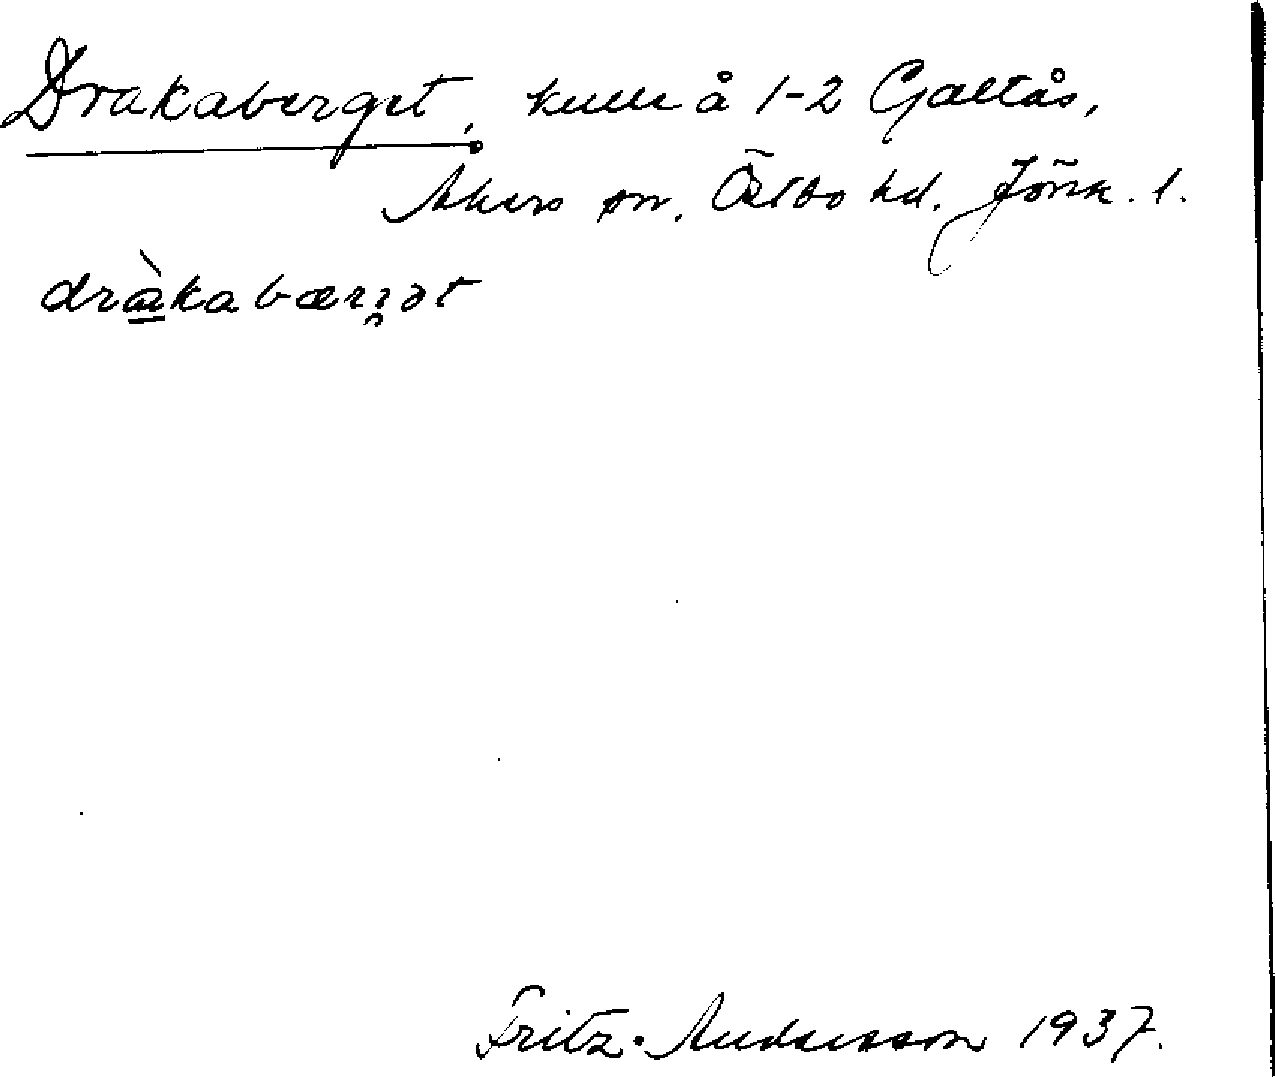 Drakaberget, kulle å 1-2 Galtås,
Åkers sn, Östbo hd. Jönk. l.
dràkabærgət
Fritz Andersson 1937.